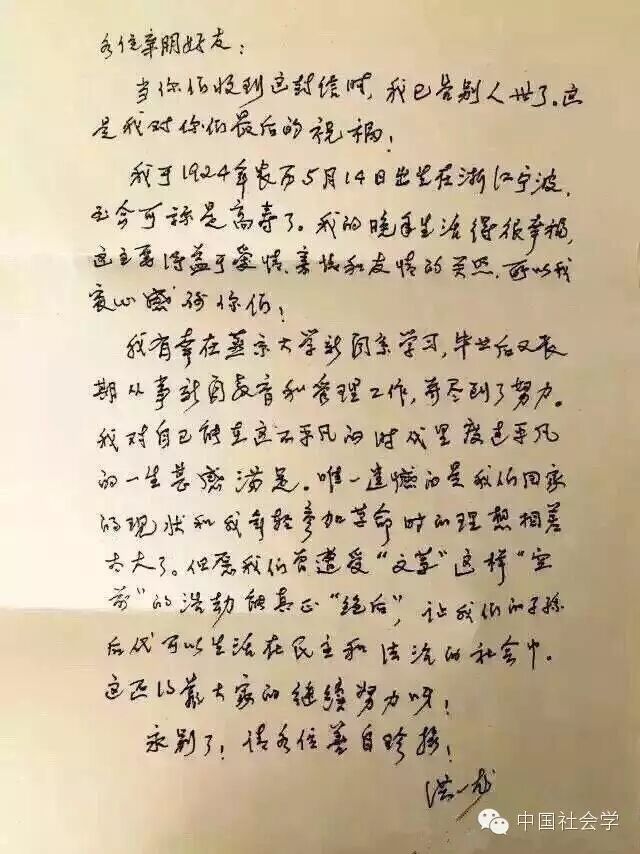 各位亲朋好友：
当你们收到这封信时，我已告别人世了。这
是我对你们最后的祝福！
我于1924年农历5月14日出生在浙江宁波，
至今可称是高寿了。我的晚年生活得很幸福，
这主要得益于爱情、亲情和友情的关照，所以我
衷心感谢你们！
我有幸在燕京大学新闻系学习，毕业后又长
期从事新闻教育和管理工作，并尽到了努力。
我对自己能在这不平凡的时代里度过平凡
的一生甚感满足。唯一遗憾的是我们国家
的现状和我年轻参加革命时的理想相差
太大了。但愿我们曾遭受“文革”这样“空
前”的浩劫能真正“绝后”，让我们的子孙
后代可以生活在民主和法治的社会中。
这还得靠大家的继续努力呀！
永别了！请各位善自珍摄！
洪一龙
中国社会学